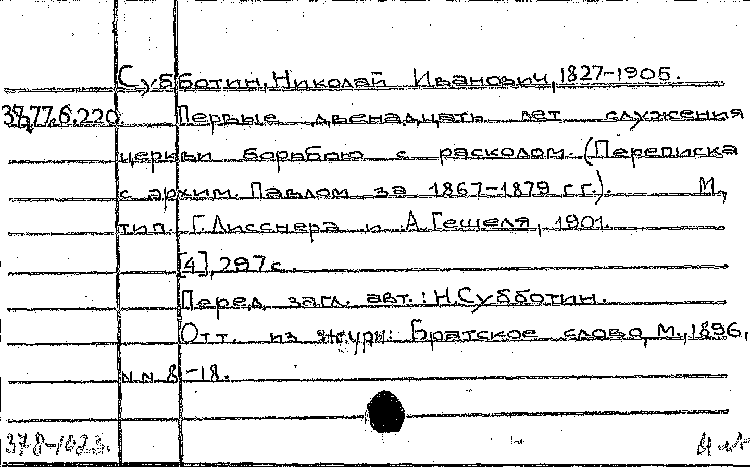 Субботин, Николай Иванович, 1827-1905.
37.77.6.220 Первые двенадцать лет служения
церкви борьбою с расколом. (Переписка
с архим. Павлом за 1867-1879 г.г.). М.,
тип. Г. Лисснера и А. Гешеля, 1901.
[4], 297 с.
Перед загл. авт.: Н. Субботин.
Отт. из журн: Братское слово, М., 1896,
N.N. 8-18.
378-1023.